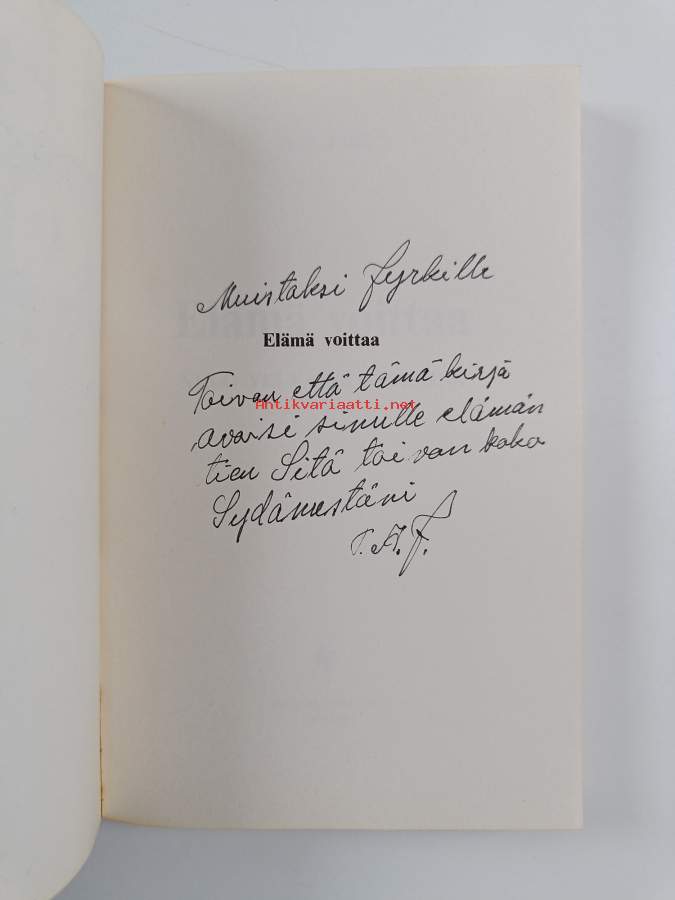 Muistaksi Jyrkille
Elämä voittaa
Toivon että tämä kirja
Antikvariaatti.net
avaisi sinulle elämän
tien Sitä toivon koko
Sydämestäni
T. A. J.